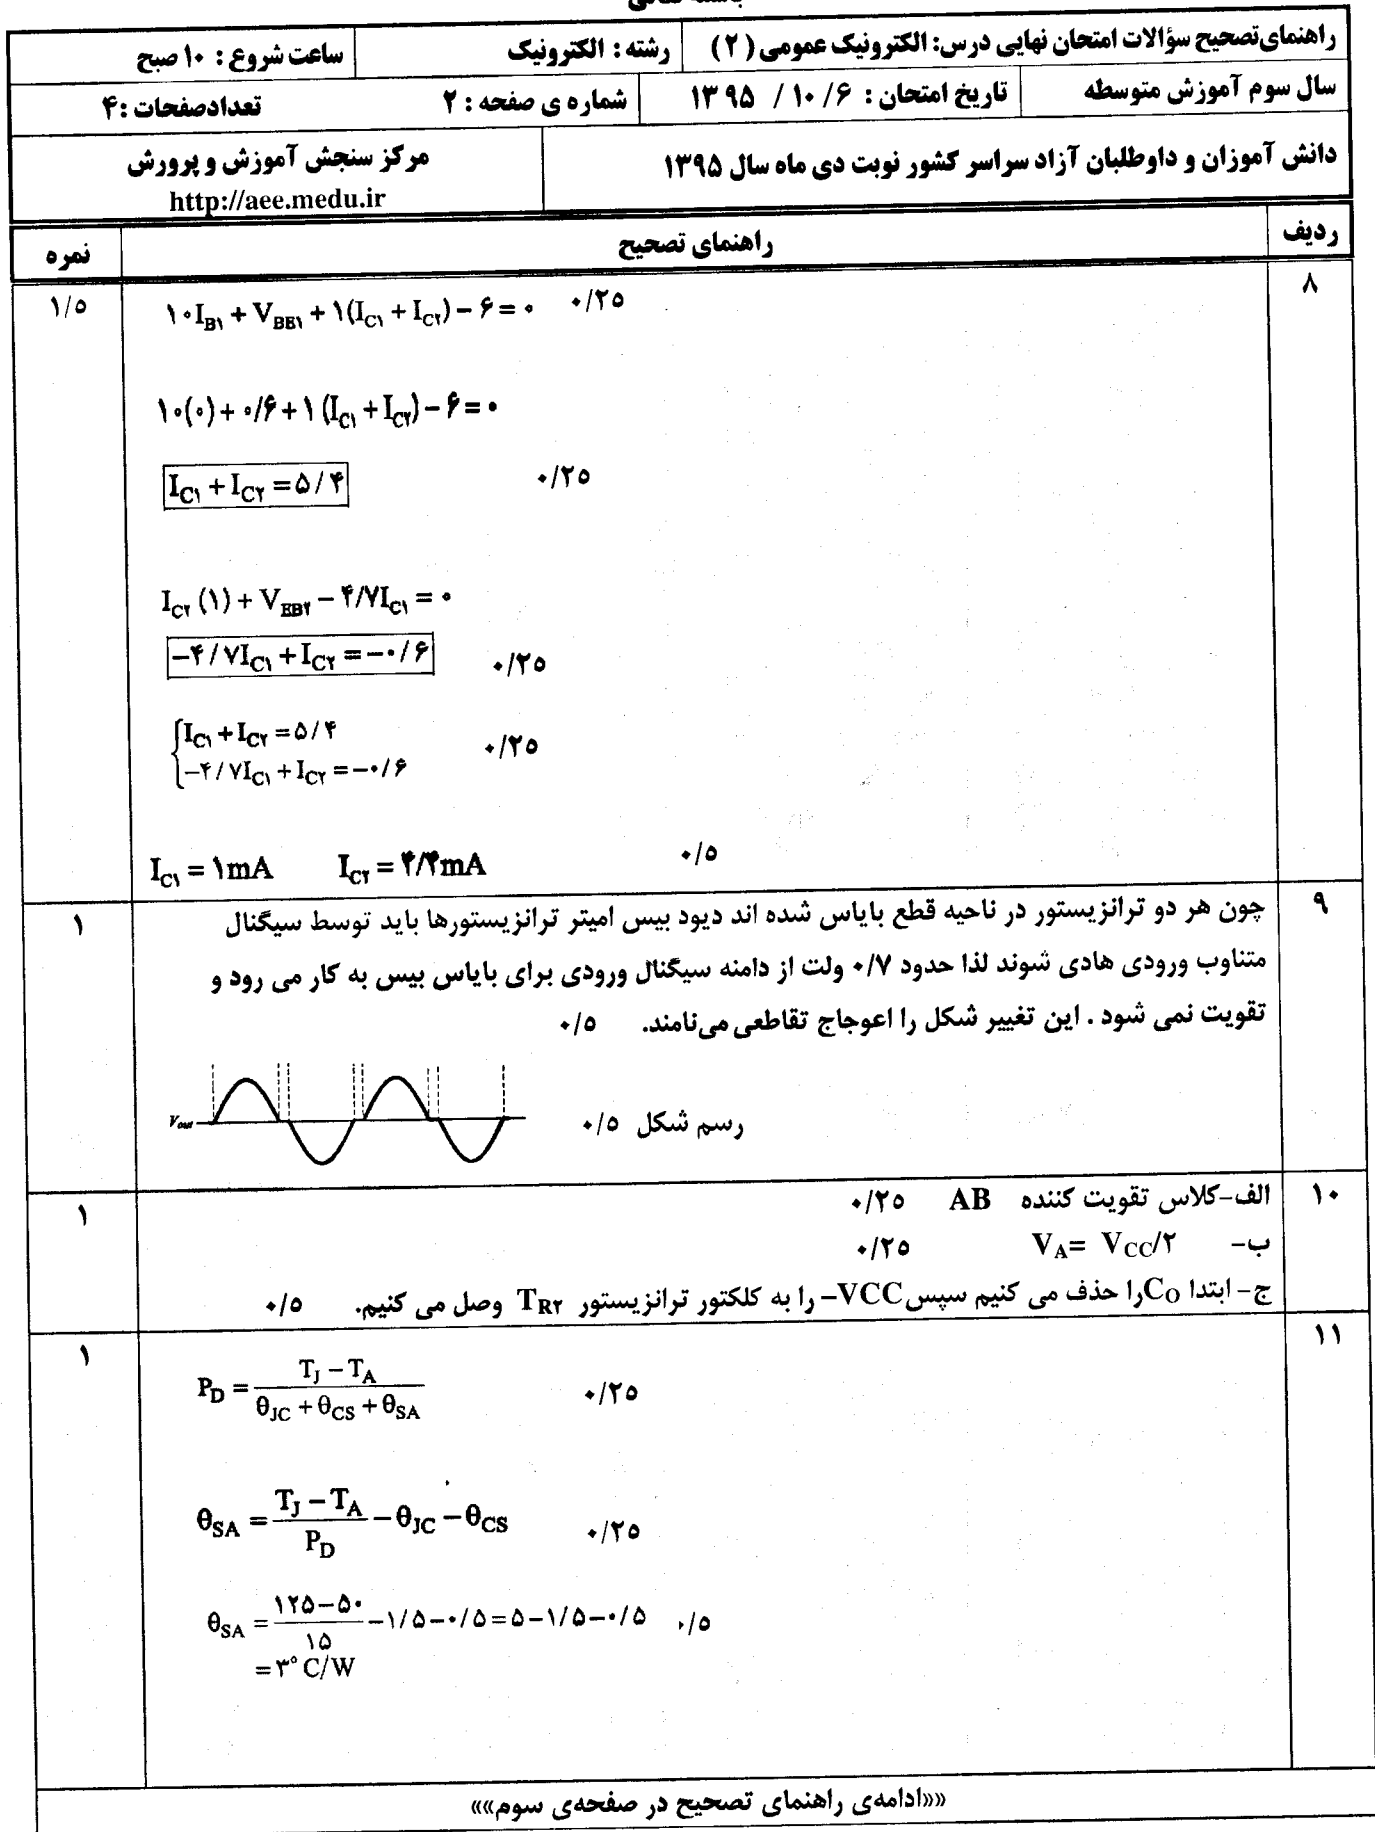 باسمه تعالی
راهنمای‌تصحیح سؤالات امتحان نهایی درس: الکترونیک عمومی (۲) رشته : الکترونیک ساعت شروع : ۱۰ صبح
سال سوم آموزش متوسطه تاریخ امتحان : ۶ / ۱۰ / ۱۳۹۵ شماره ی صفحه : ۲ تعدادصفحات :۴
دانش آموزان و داوطلبان آزاد سراسر کشور نوبت دی ماه سال ۱۳۹۵ مرکز سنجش آموزش و پرورش
http://aee.medu.ir
ردیف راهنمای تصحیح نمره
۸ ۱/۵
۱۰I_B۱ + V_BE۱ + ۱(I_C۱ + I_C۲) − ۶ = ۰ ۰/۲۵
۱۰(۰) + ۰/۶ + ۱ (I_C۱ + I_C۲) − ۶ = ۰
I_C۱ + I_C۲ = ۵/۴ ۰/۲۵
I_C۲ (۱) + V_EB۲ − ۴/۷I_C۱ = ۰
−۴/۷I_C۱ + I_C۲ = −۰/۶ ۰/۲۵
{I_C۱ + I_C۲ = ۵/۴ ۰/۲۵
−۴/۷I_C۱ + I_C۲ = −۰/۶
I_C۱ = ۱mA I_C۲ = ۴/۴mA ۰/۵
۹ چون هر دو ترانزیستور در ناحیه قطع بایاس شده اند دیود بیس امیتر ترانزیستورها باید توسط سیگنال ۱
متناوب ورودی هادی شوند لذا حدود ۰/۷ ولت از دامنه سیگنال ورودی برای بایاس بیس به کار می رود و
تقویت نمی شود . این تغییر شکل را اعوجاج تقاطعی می‌نامند. ۰/۵
رسم شکل ۰/۵ V_out
۱۰ الف-کلاس تقویت کننده AB ۰/۲۵ ۱
ب- V_A = V_CC/۲ ۰/۲۵
ج- ابتدا C_O را حذف می کنیم سپس VCC− را به کلکتور ترانزیستور T_R۲ وصل می کنیم. ۰/۵
۱۱ ۱
P_D = (T_J − T_A) / (θ_JC + θ_CS + θ_SA) ۰/۲۵
θ_SA = (T_J − T_A) / P_D − θ_JC − θ_CS ۰/۲۵
θ_SA = (۱۲۵−۵۰) / ۱۵ − ۱/۵ − ۰/۵ = ۵ − ۱/۵ − ۰/۵ ۰/۵
= ۳° C/W
««ادامه‌ی راهنمای تصحیح در صفحه‌ی سوم»»